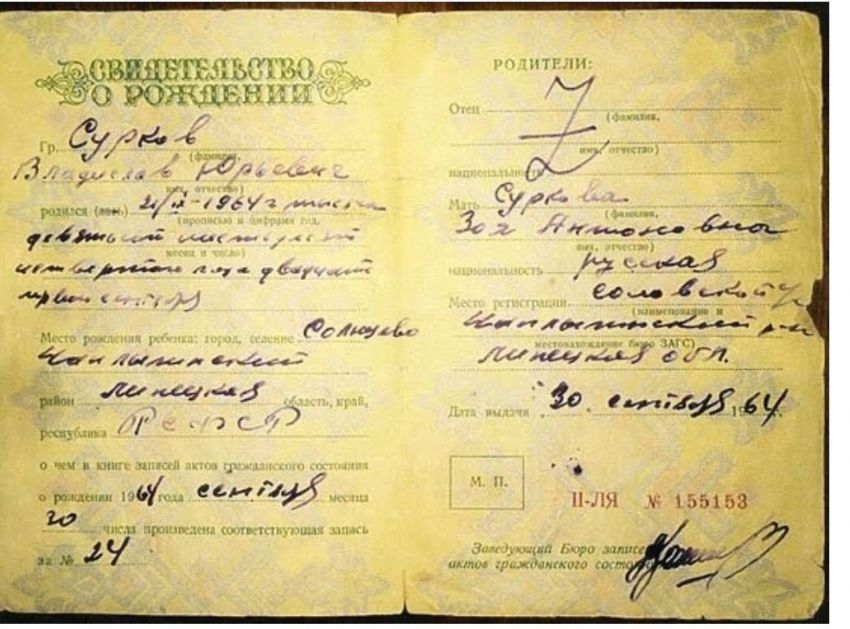 СВИДЕТЕЛЬСТВО
О РОЖДЕНИИ
Гр. Сурков
(фамилия,
Владислав Юрьевич
имя, отчество)
родился (лась) 21/IX-1964 г тысяча
(прописью и цифрами год,
девятьсот шестьдесят
месяц и число)
четвертого года двадцать
первого сентября
Место рождения ребенка: город, селение Солнцево
Чаплыгинский
район Липецкая область, край,
республика РСФСР
о чем в книге записей актов гражданского состояния
о рождении 1964 года сентября месяца
30 числа произведена соответствующая запись
за № 24
РОДИТЕЛИ:
Отец Z
(фамилия,
имя, отчество)
национальность
Мать Суркова
(фамилия,
Зоя Антоновна
имя, отчество)
национальность русская
Место регистрации Соловской
(наименование и
Чаплыгинский р-н
местонахождение бюро ЗАГС)
Липецкая обл.
Дата выдачи „30 „ сентября 1964
М. П.
II-ЛЯ № 155153
Заведующий Бюро записе
актов гражданского состо